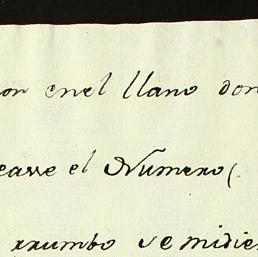 on enel llano don
easse el Numero(
rrumbo se midie